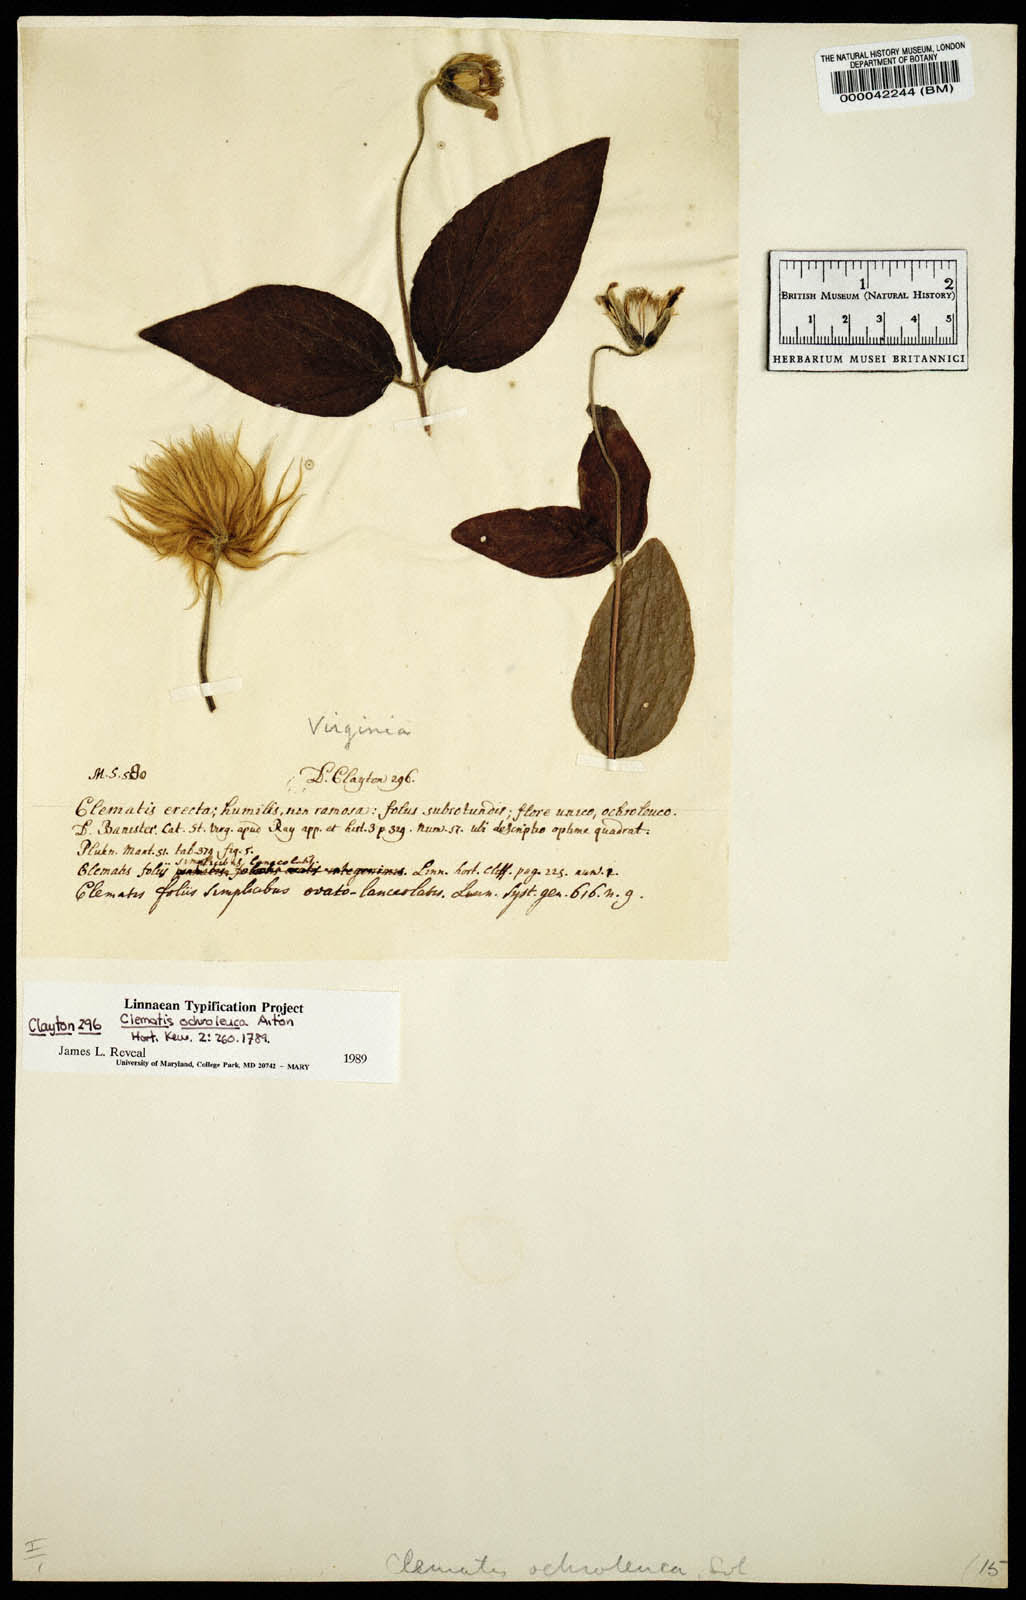 THE NATURAL HISTORY MUSEUM, LONDON
DEPARTMENT OF BOTANY
000042244 (BM)
1 2
BRITISH MUSEUM (NATURAL HISTORY)
1 2 3 4 5
HERBARIUM MUSEI BRITANNICI
Virginia
M.S. 580
D. Clayton 296.
Clematis erecta; humilis, non ramosa: foliis subrotundis; flore unico, ochroleuco.
D. Banister. Cat. St. Virg. apud Ray app. et hist. 3 p 329. num. 57. uti descriptio optime quadrat.
Plukn. Mant. 51. tab. 379 fig. 5.
simplicibus
Clematis foliis Linn. hort. Cliff. pag. 225. num. 2.
Clematis foliis simplicibus ovato-lanceolatis. Linn. Syst. gen. 616. n. 9.
Linnaean Typification Project
Clayton 296 Clematis ochroleuca Aiton
Hort. Kew. 2: 260. 1789.
James L. Reveal 1989
University of Maryland, College Park, MD 20742 – MARY
I
1
Clematis ochroleuca, Sol
15